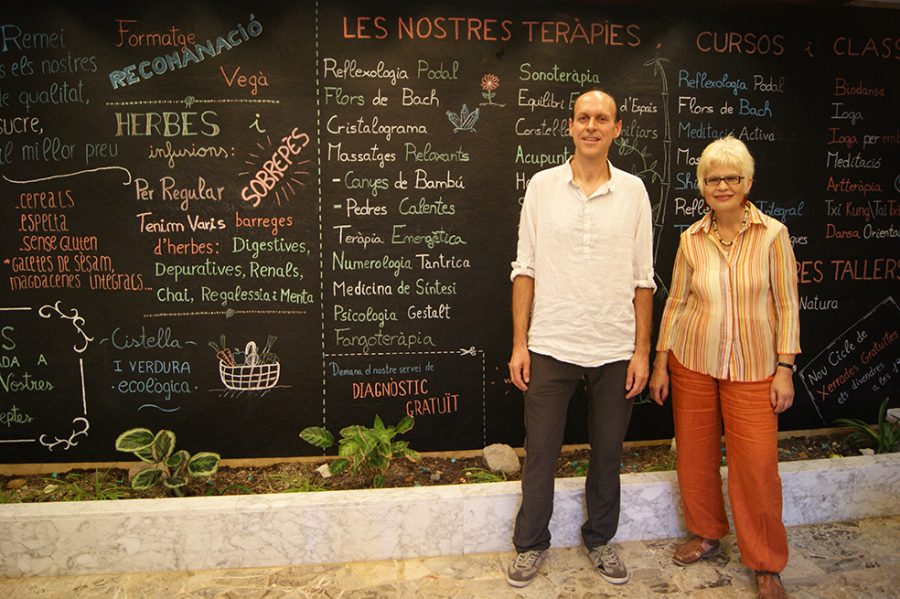 Remei
s els nostres
de qualitat,
sucre,
il millor preu
.cereals
.espelta
.sense gluten
*galetes de sèsam,
magdacenes integrals...
Nostres
Formatge
RECOMANACIÓ
Vegà
HERBES i
infusions:
SOBREPÈS
Per Regular
Tenim Varis barreges
d'herbes: Digestives,
Depuratives, Renals,
Chai, Regalèssia i Menta
Cistella
I VERDURA
ecològica
LES NOSTRES TERÀPIES
Reflexologia Podal
Flors de Bach
Cristalograma
Massatges Relaxants
- Canyes de Bambú
- Pedres Calentes
Teràpia Energètica
Numerologia Tàntrica
Medicina de Síntesi
Psicologia Gestalt
Fangoteràpia
Demana el nostre servei de
DIAGNÒSTIC
GRATUÏT
Sonoteràpia
Equilibri d'Espais
Constel miliars
Acupunt
CURSOS i CLASS
Reflexologia Podal
Flors de Bach
Meditació Activa
Mas
Shi
Refle Integral
Biodansa
Ioga
Ioga per emb
Meditació
Artteràpia
Txi Kung\Tai Txi
Dansa Orient
RES TALLERS
Natura
Nou Cicle de
Xerrades Gratuïtes
els divendres
a les 19